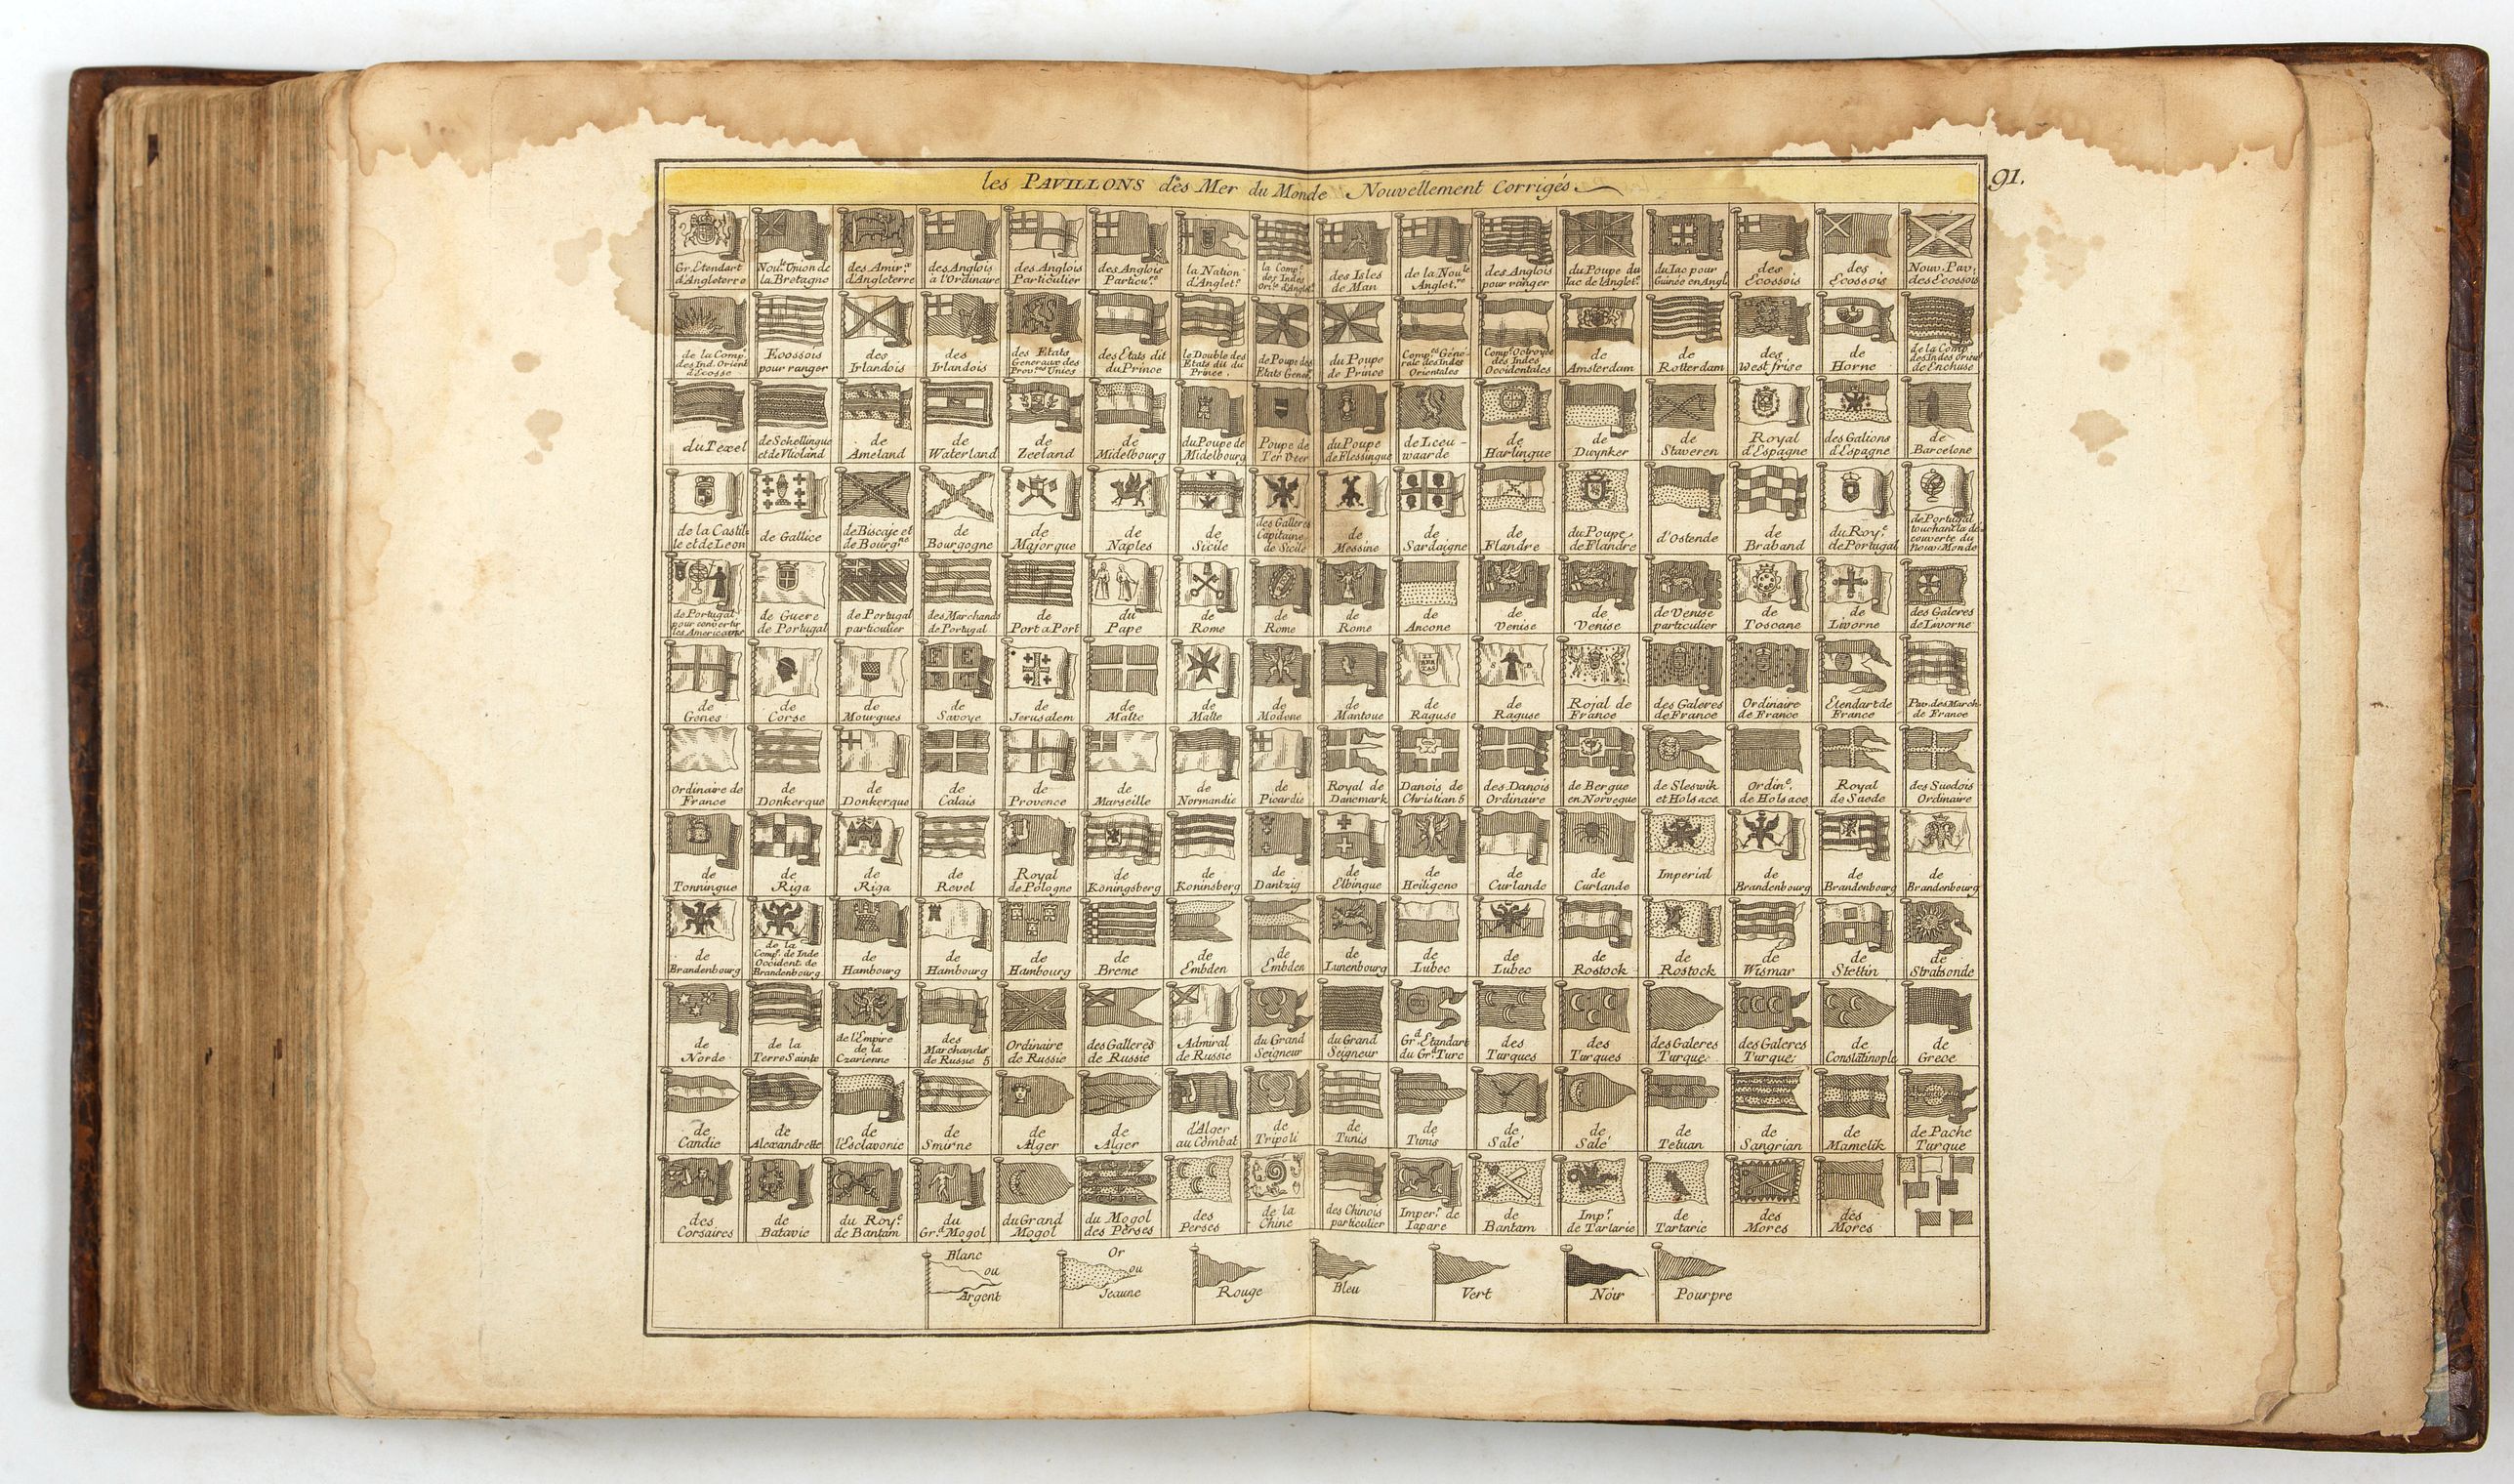 les PAVILLONS des Mer du Monde Nouvellement Corrigés
91.
Gr. Etendart
d'Angleterre
Nou.le Union de
la Bretagne
des Amir.x
d'Angleterre
des Anglois
a l'Ordinaire
des Anglois
Particulier
des Anglois
Particu.rs
la Nation
d'Anglet.e
la Comp.e
des Indes
Ori.le d'Anglet.
des Isles
de Man
de la Nou.le
Anglet.re
des Anglois
pour ranger
du Poupe du
Iac de l'Anglet.e
du Iac pour
Guinée en Angl.
des
Ecossois
des
Ecossois
Nouv. Pav.
des Ecossois
de la Comp.e
des Ind. Orient
d'Ecosse
Ecossois
pour ranger
des
Irlandois
des
Irlandois
des Etats
Generaux des
Prov.ces Unies
des Etats dit
du Prince
le Double des
Etats dit du
Prince.
de Poupe des
Etats Gener.
du Poupe
de Prince
Comp.e Géné-
rale des Indes
Orientales
Comp.e Octroyée
des Indes
Occidentales
de
Amsterdam
de
Rotterdam
des
West frise
de
Horne
de la Comp.
des Indes orien
de Enchuse
du Texel
de Schellingue
et de Vlieland
de
Ameland
de
Waterland
de
Zeeland
de
Midelbourg
du Poupe de
Midelbourg
Poupe de
Ter Veer
du Poupe
de Flessingue
de Leeu-
waarde
de
Harlingue
de
Duynker
de
Staveren
Royal
d'Espagne
des Galions
d'Espagne
de
Barcelone
de la Castil-
le et de Leon
de Gallice
de Biscaje et
de Bourg.ne
de
Bourgogne
de
Majorque
de
Naples
de
Sicile
des Galleres
Capitaine
de Sicile
de
Messine
de
Sardaigne
de
Flandre
du Poupe
de Flandre
d'Ostende
de
Braband
du Roy.e
de Portugal
de Portugal
touchant la dé-
couverte du
Nouv. Monde
de Portugal
pour convertir
les Americains
de Guere
de Portugal
de Portugal
particulier
des Marchands
de Portugal
de
Port a Port
du
Pape
de
Rome
de
Rome
de
Rome
de
Ancone
de
Venise
de
Venise
de Venise
particulier
de
Toscane
de
Livorne
des Galeres
de Livorne
de
Genes
de
Corse
de
Mourgues
de
Savoye
de
Jerusalem
de
Malte
de
Malte
de
Modene
de
Mantoue
de
Raguse
de
Raguse
Rojal de
France
des Galeres
de France
Ordinaire
de France
Etendart de
France
Pav. des March.
de France
Ordinaire de
France
de
Donkerque
de
Donkerque
de
Calais
de
Provence
de
Marseille
de
Normandie
de
Picardie
Royal de
Danemark
Danois de
Christian 5
des Danois
Ordinaire
de Bergue
en Norvegue
de Sleswik
et Holsace
Ordin.e
de Holsace
Royal
de Suede
des Suedois
Ordinaire
de
Tonningue
de
Riga
de
Riga
de
Revel
Royal
de Pologne
de
Koningsberg
de
Koninsberg
de
Dantzig
de
Elbingue
de
Heiligene
de
Curlande
de
Curlande
Imperial
de
Brandenbourg
de
Brandenbourg
de
Brandenbourg
de
Brandenbourg
de la
Comp. de Inde
Occident. de
Brandenbourg
de
Hambourg
de
Hambourg
de
Hambourg
de
Breme
de
Embden
de
Embden
de
Lunenbourg
de
Lubec
de
Lubec
de
Rostock
de
Rostock
de
Wismar
de
Stettin
de
Stralsonde
de
Norde
de la
Terre Sainte
de l'Empire
de la
Czarienne
des
Marchands
de Russie 5
Ordinaire
de Russie
des Galleres
de Russie
Admiral
de Russie
du Grand
Seigneur
du Grand
Seigneur
Gr.d Etandart
du Gr. Turc
des
Turques
des
Turques
des Galeres
Turque.
des Galeres
Turque.
de
Constatinople
de
Grece
de
Candie
de
Alexandrette
de
l'Esclavonie
de
Smirne
de
Alger
de
Alger
d'Alger
au Combat
de
Tripoli
de
Tunis
de
Tunis
de
Salé
de
Salé
de
Tetuan
de
Sangrian
de
Mamelik
de Pache
Turque
des
Corsaires
de
Batavie
du Roy.e
de Bantam
du
Gr.d Mogol
du Grand
Mogol
du Mogol
des Perses
des
Perses
de la
Chine
des Chinois
particulier
Imper.r de
Iapare
de
Bantam
Imp.r
de Tartarie
de
Tartarie
des
Mores
des
Mores
Blanc
ou
Argent
Or
ou
Jeaune
Rouge
Bleu
Vert
Noir
Pourpre